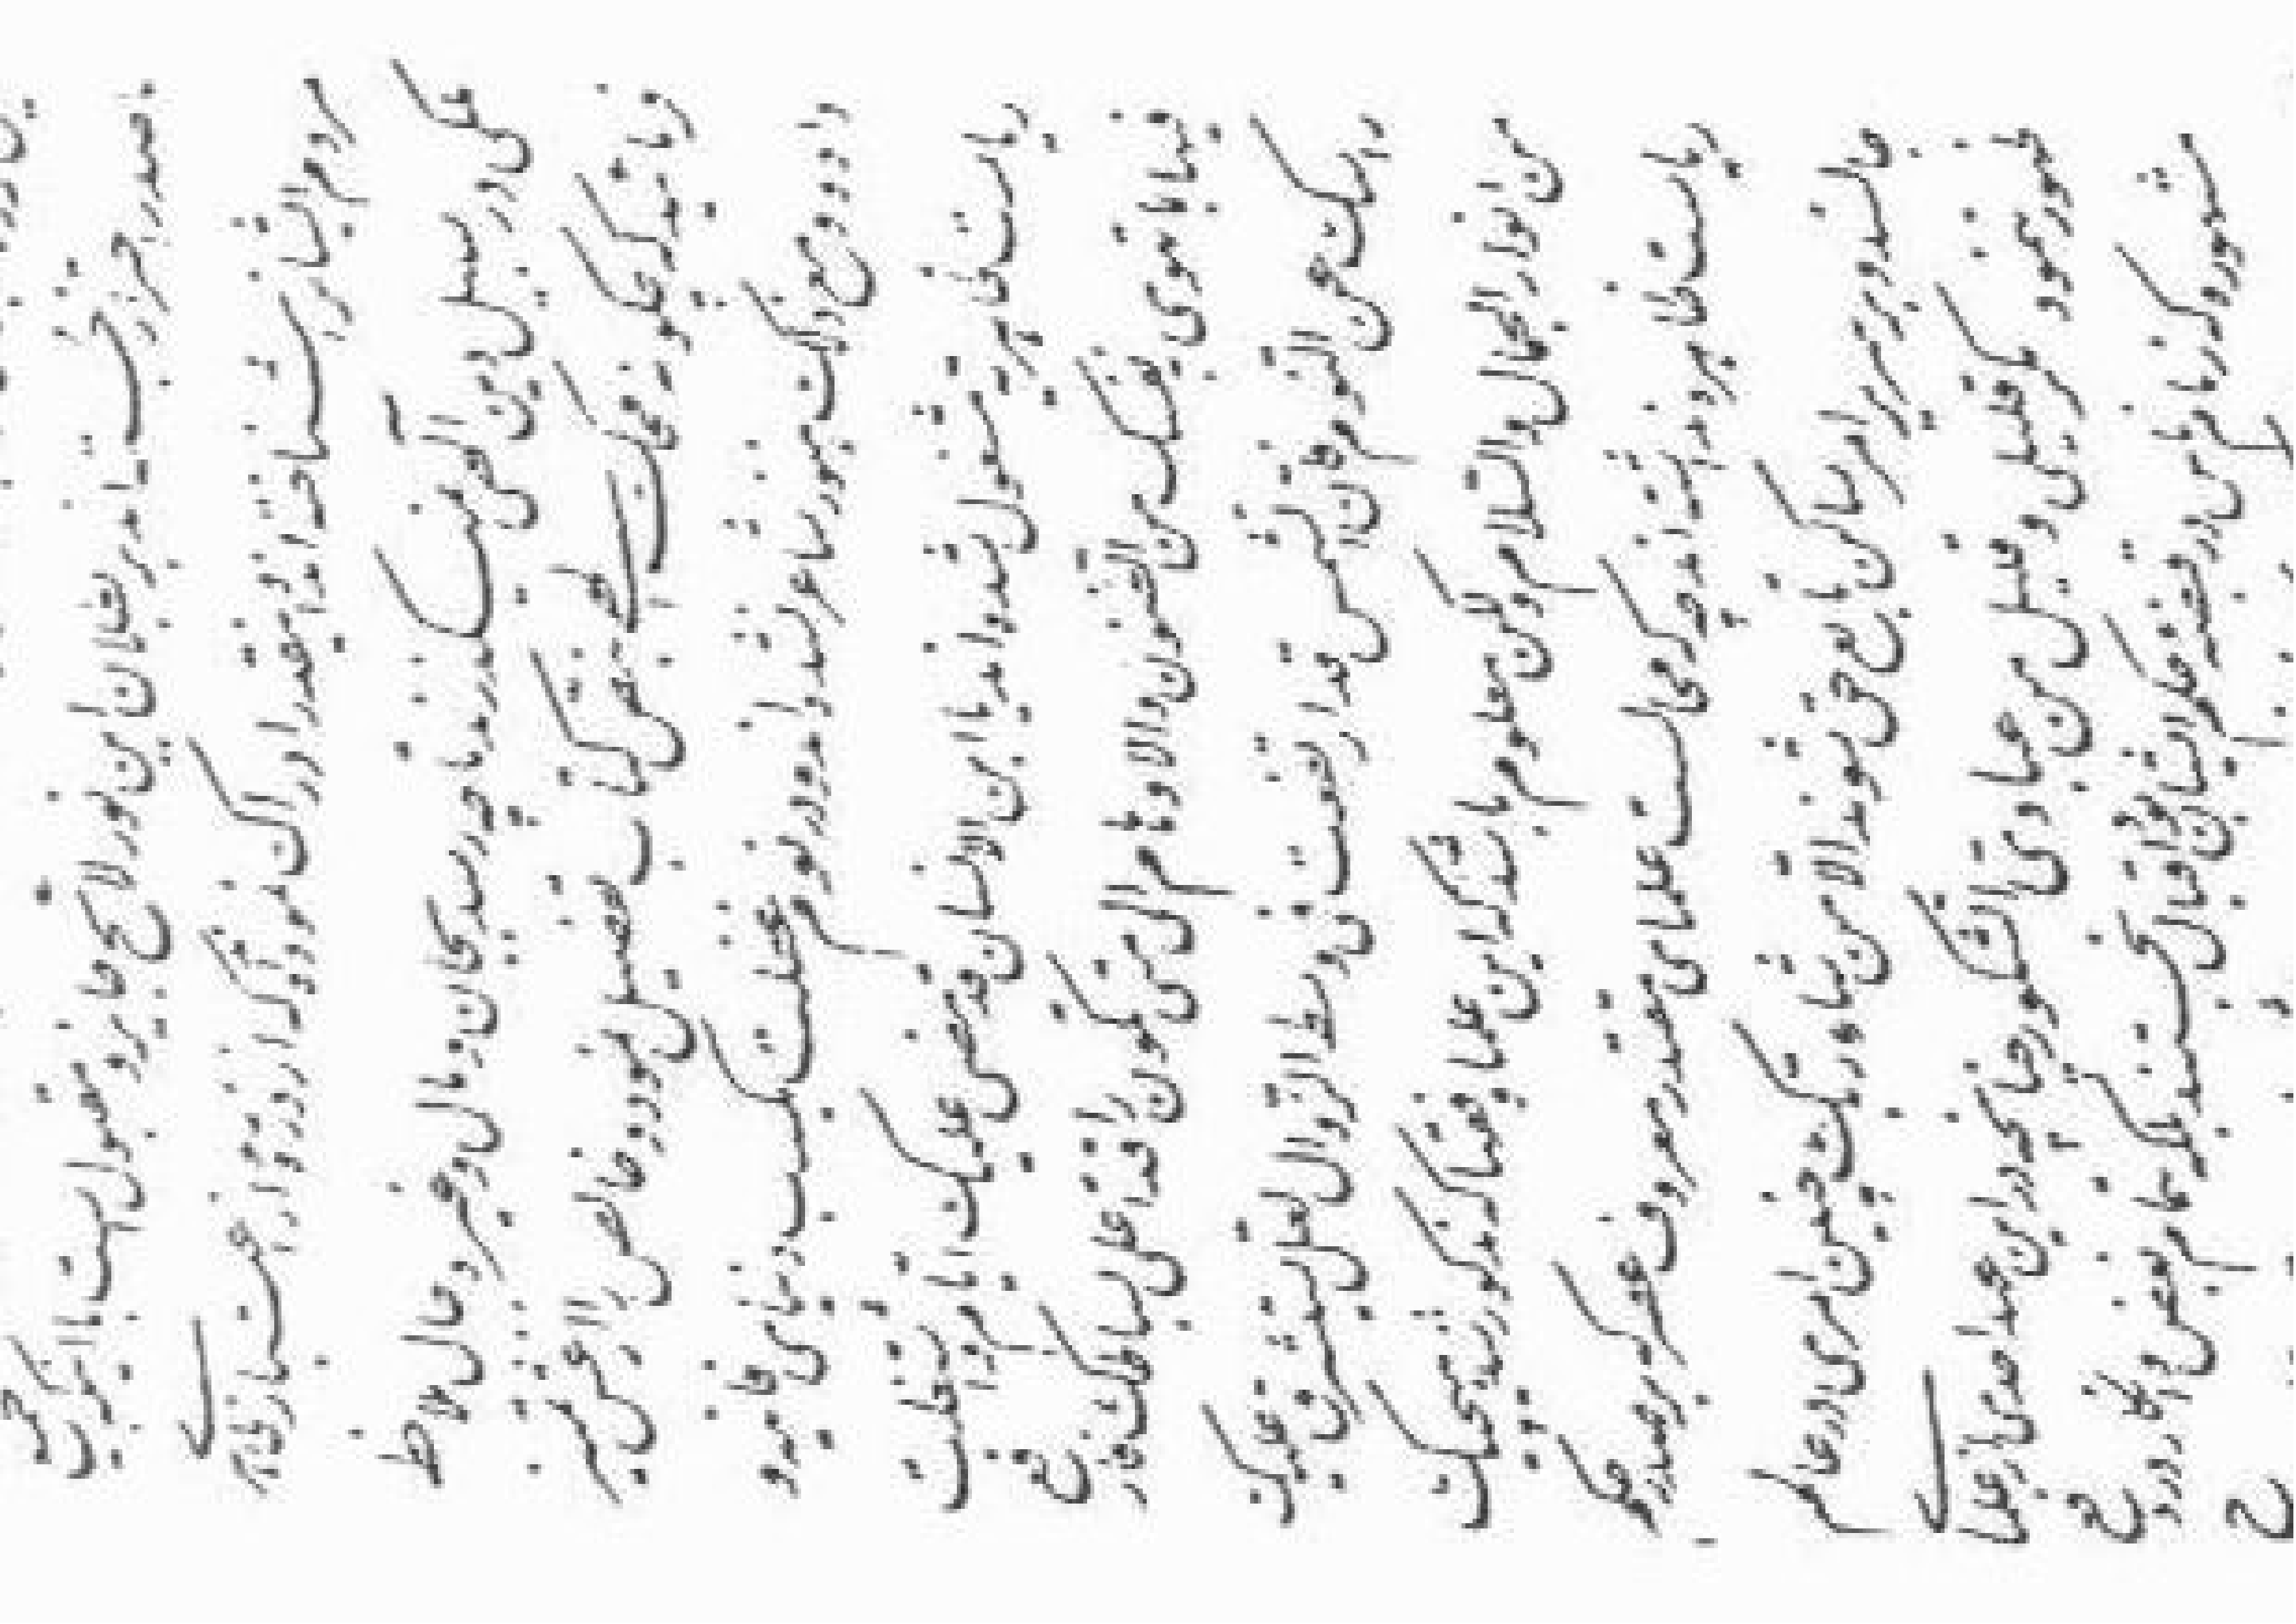 صدر احتراز جسته‌اند بر بطلان این نور لائح جایز و مقبول است با اینکه جمیع
مردم ایشان را شناخته‌اند و اینقدر ادراک نموده که از ذرّه از اعتبار ظاهری
ملکی در سبیل دین الهی نمیگذرند تا چه رسد بجان و مال و غیره و حال ملاحظه
فرمائید که چگونه محک الهی بنص کتاب تفصیل نموده و خالص را از غش تمیز
داده و مع ذلک هنوز شاعر نشده‌اند و در نوم غفلت بکسب دنیای فانیه و
ریاست فانیه مشغول شده‌اند یا ابن الانسان قد مضی علیک ایام و اشتغلت
فیها بما تهوی به نفسک من الظنون و الاوهام الی متی تکون راقدا علی بساطک فارفع
راسک عن النوم فان الشمس قد ارتفعت فی وسط الزوال لعل تشرق علیک
من انوار الجمال والسلام ولکن معلوم باشد که این علما و فقها که مذکور شد هیچیک
ریاست ظاهره نداشته‌اند چه که محال است علمای مقتدر معروف عصر که بر صدر حکم
جالسند و بر سریر امر ساکن تابع حق شوند الا من شاء ربک چنین امری در عالم
ظهور ننمود مگر قلیلی و قلیل من عبادی الشکور چنانچه در این عهد احدی از علمای
مشهور که زمام ناس در قبضه حکم ایشان بود اقبال نجستند بلکه بتمام بغض و انکار در دفع